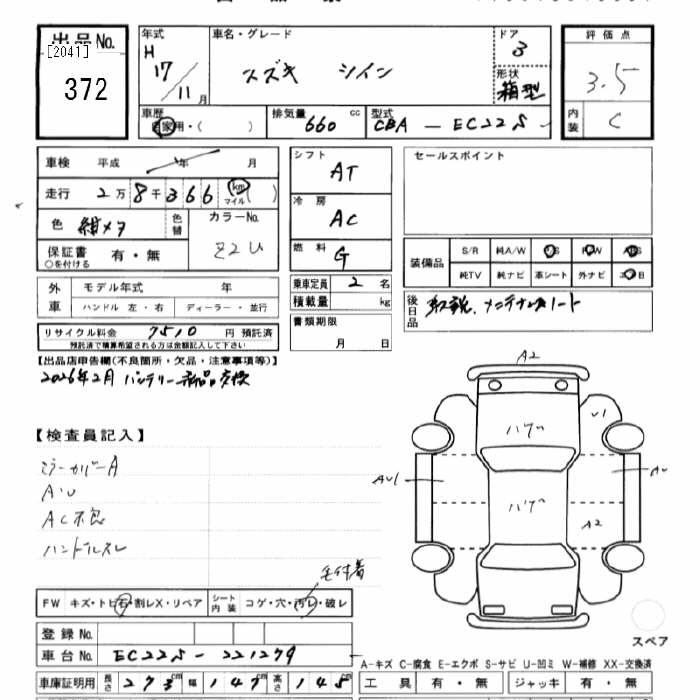 出品No.
[2041]
372
年式 H 17/11月
車名・グレード スズキ ツイン
ドア 3
形状 箱型
評価点 3.5
内装 C
車歴 自家用・( )
排気量 660 cc
型式 CBA-EC22S
車検 平成 年 月
走行 2万8千366 km マイル ( )
色 紺メタ 色替
カラーNo. Z2U
保証書 有・無
○を付ける
外車 モデル年式 年
ハンドル 左・右 ディーラー・並行
リサイクル料金 7510 円 預託済
預託済で精算希望される方は金額記入して下さい
シフト AT
冷房 AC
燃料 G
乗車定員 2 名
積載量 kg
書類期限 月 日
セールスポイント
装備品 S/R 純A/W P/S P/W A/B
純TV 純ナビ 革シート 外ナビ
後日品 取説、メンテナンスノート
【出品店申告欄(不良箇所・欠品・注意事項等)】
2026年2月 バッテリー新品交換
【検査員記入】
ミラーカバーA
A・U
AC不良
ハンドルスレ
毛付着
FW キズ・トビ石・割レX・リペア シート内装 コゲ・穴・汚レ・破レ
登録No.
車台No. EC22S-221279
車庫証明用 長さ 273cm 幅 147cm 高さ 145cm
A2
ハゲ
U1
AU1
ハゲ
AU
A2
スペア
A-キズ C-腐食 E-エクボ S-サビ U-凹ミ W-補修 XX-交換済
工具 有・無 ジャッキ 有・無